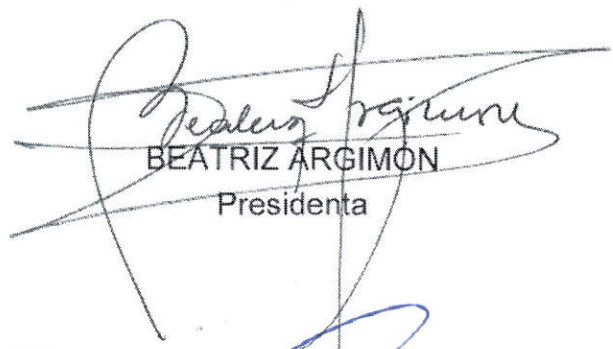 Beatriz Argimon
BEATRIZ ARGIMÓN
Presidenta